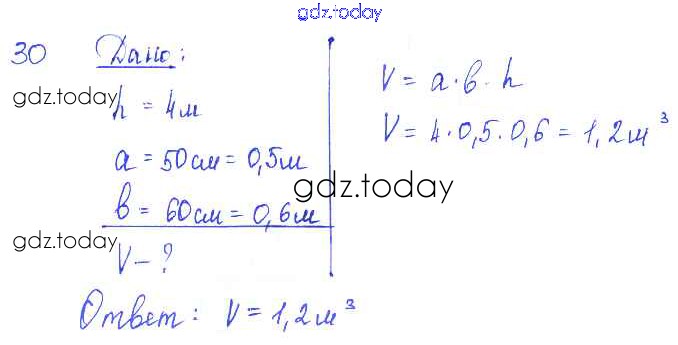 gdz.today
30 Дано:
gdz.today
h = 4м
a = 50см = 0,5м
в = 60см = 0,6м
gdz.today
V - ?
V = a · в · h
V = 4 · 0,5 · 0,6 = 1,2м³
gdz.today
Ответ: V = 1,2м³